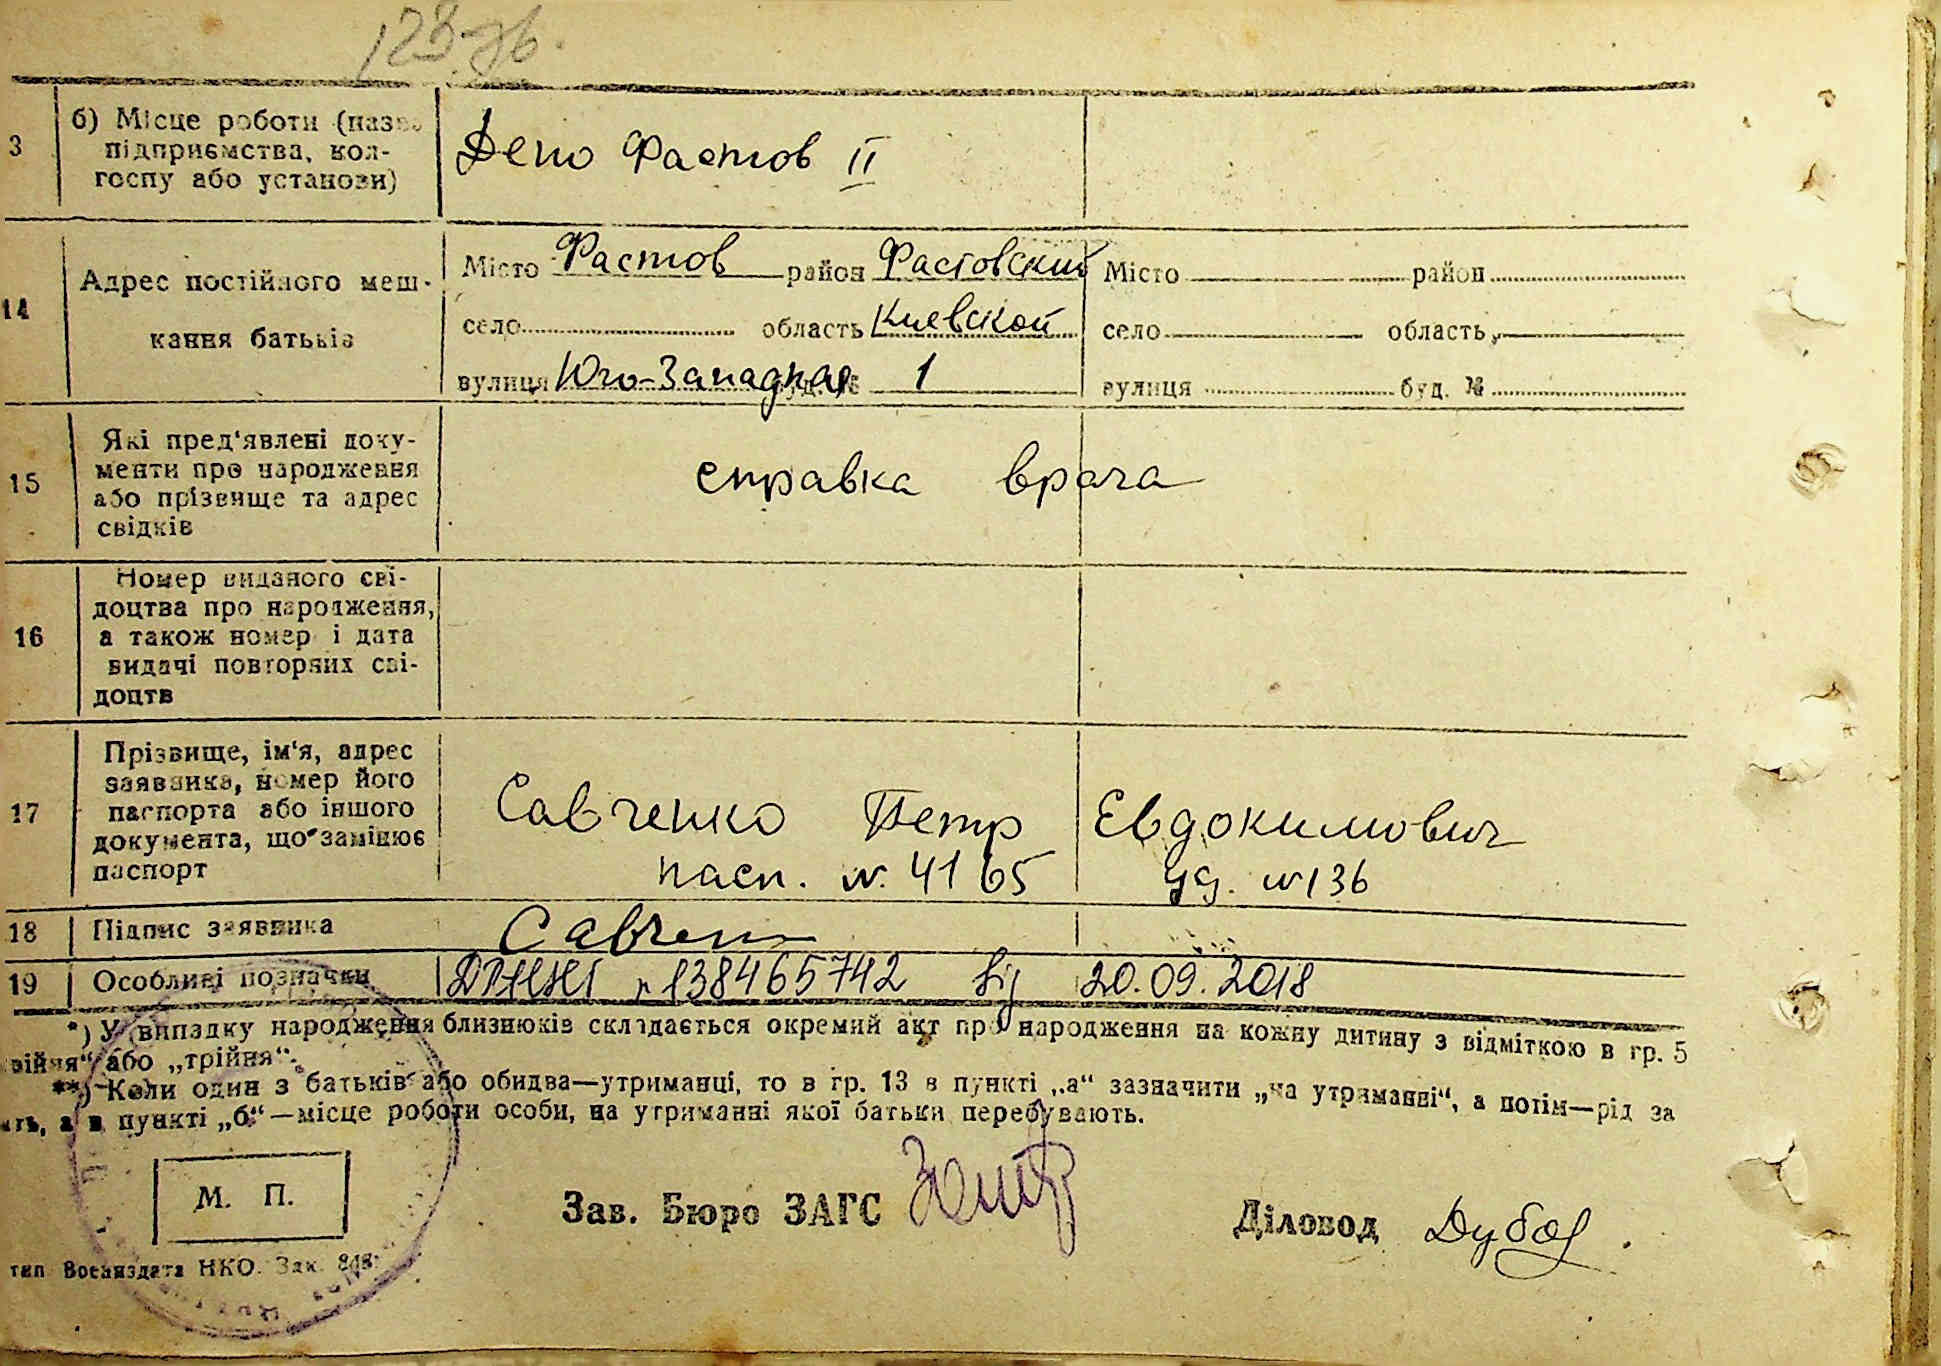 3
б) Місце роботи (назва
підприємства, кол-
госпу або установи)
Депо Фастов II
14
Адрес постійного меш-
кання батьків
Місто Фастов район Фастовский
село область Киевской
вулиця Юго-Западная буд. № 1
Місто район
село область
вулиця буд. №
15
Які пред'явлені доку-
менти про народження
або прізвище та адрес
свідків
справка врача
16
Номер виданого сві-
доцтва про народження,
а також номер і дата
видачі повторних сві-
доцтв
17
Прізвище, ім'я, адрес
заявника, номер його
паспорта або іншого
документа, що замінює
паспорт
Савченко Петр Евдокимович
пасп. № 4165 уд. № 136
18 Підпис заявника Савчен
19 Особливі позначки 138465742 від 20.09.2018
*) У випадку народження близнюків складається окремий акт про народження на кожну дитину з відміткою в гр. 5
війня“ або „трійня“.
**) Коли один з батьків або обидва—утриманці, то в гр. 13 в пункті „а“ зазначити „на утриманні“, а потім—рід за
ять, а в пункті „б“—місце роботи особи, на утриманні якої батьки перебувають.
М. П.
Зав. Бюро ЗАГС
Діловод
тип Воениздата НКО. Зак.